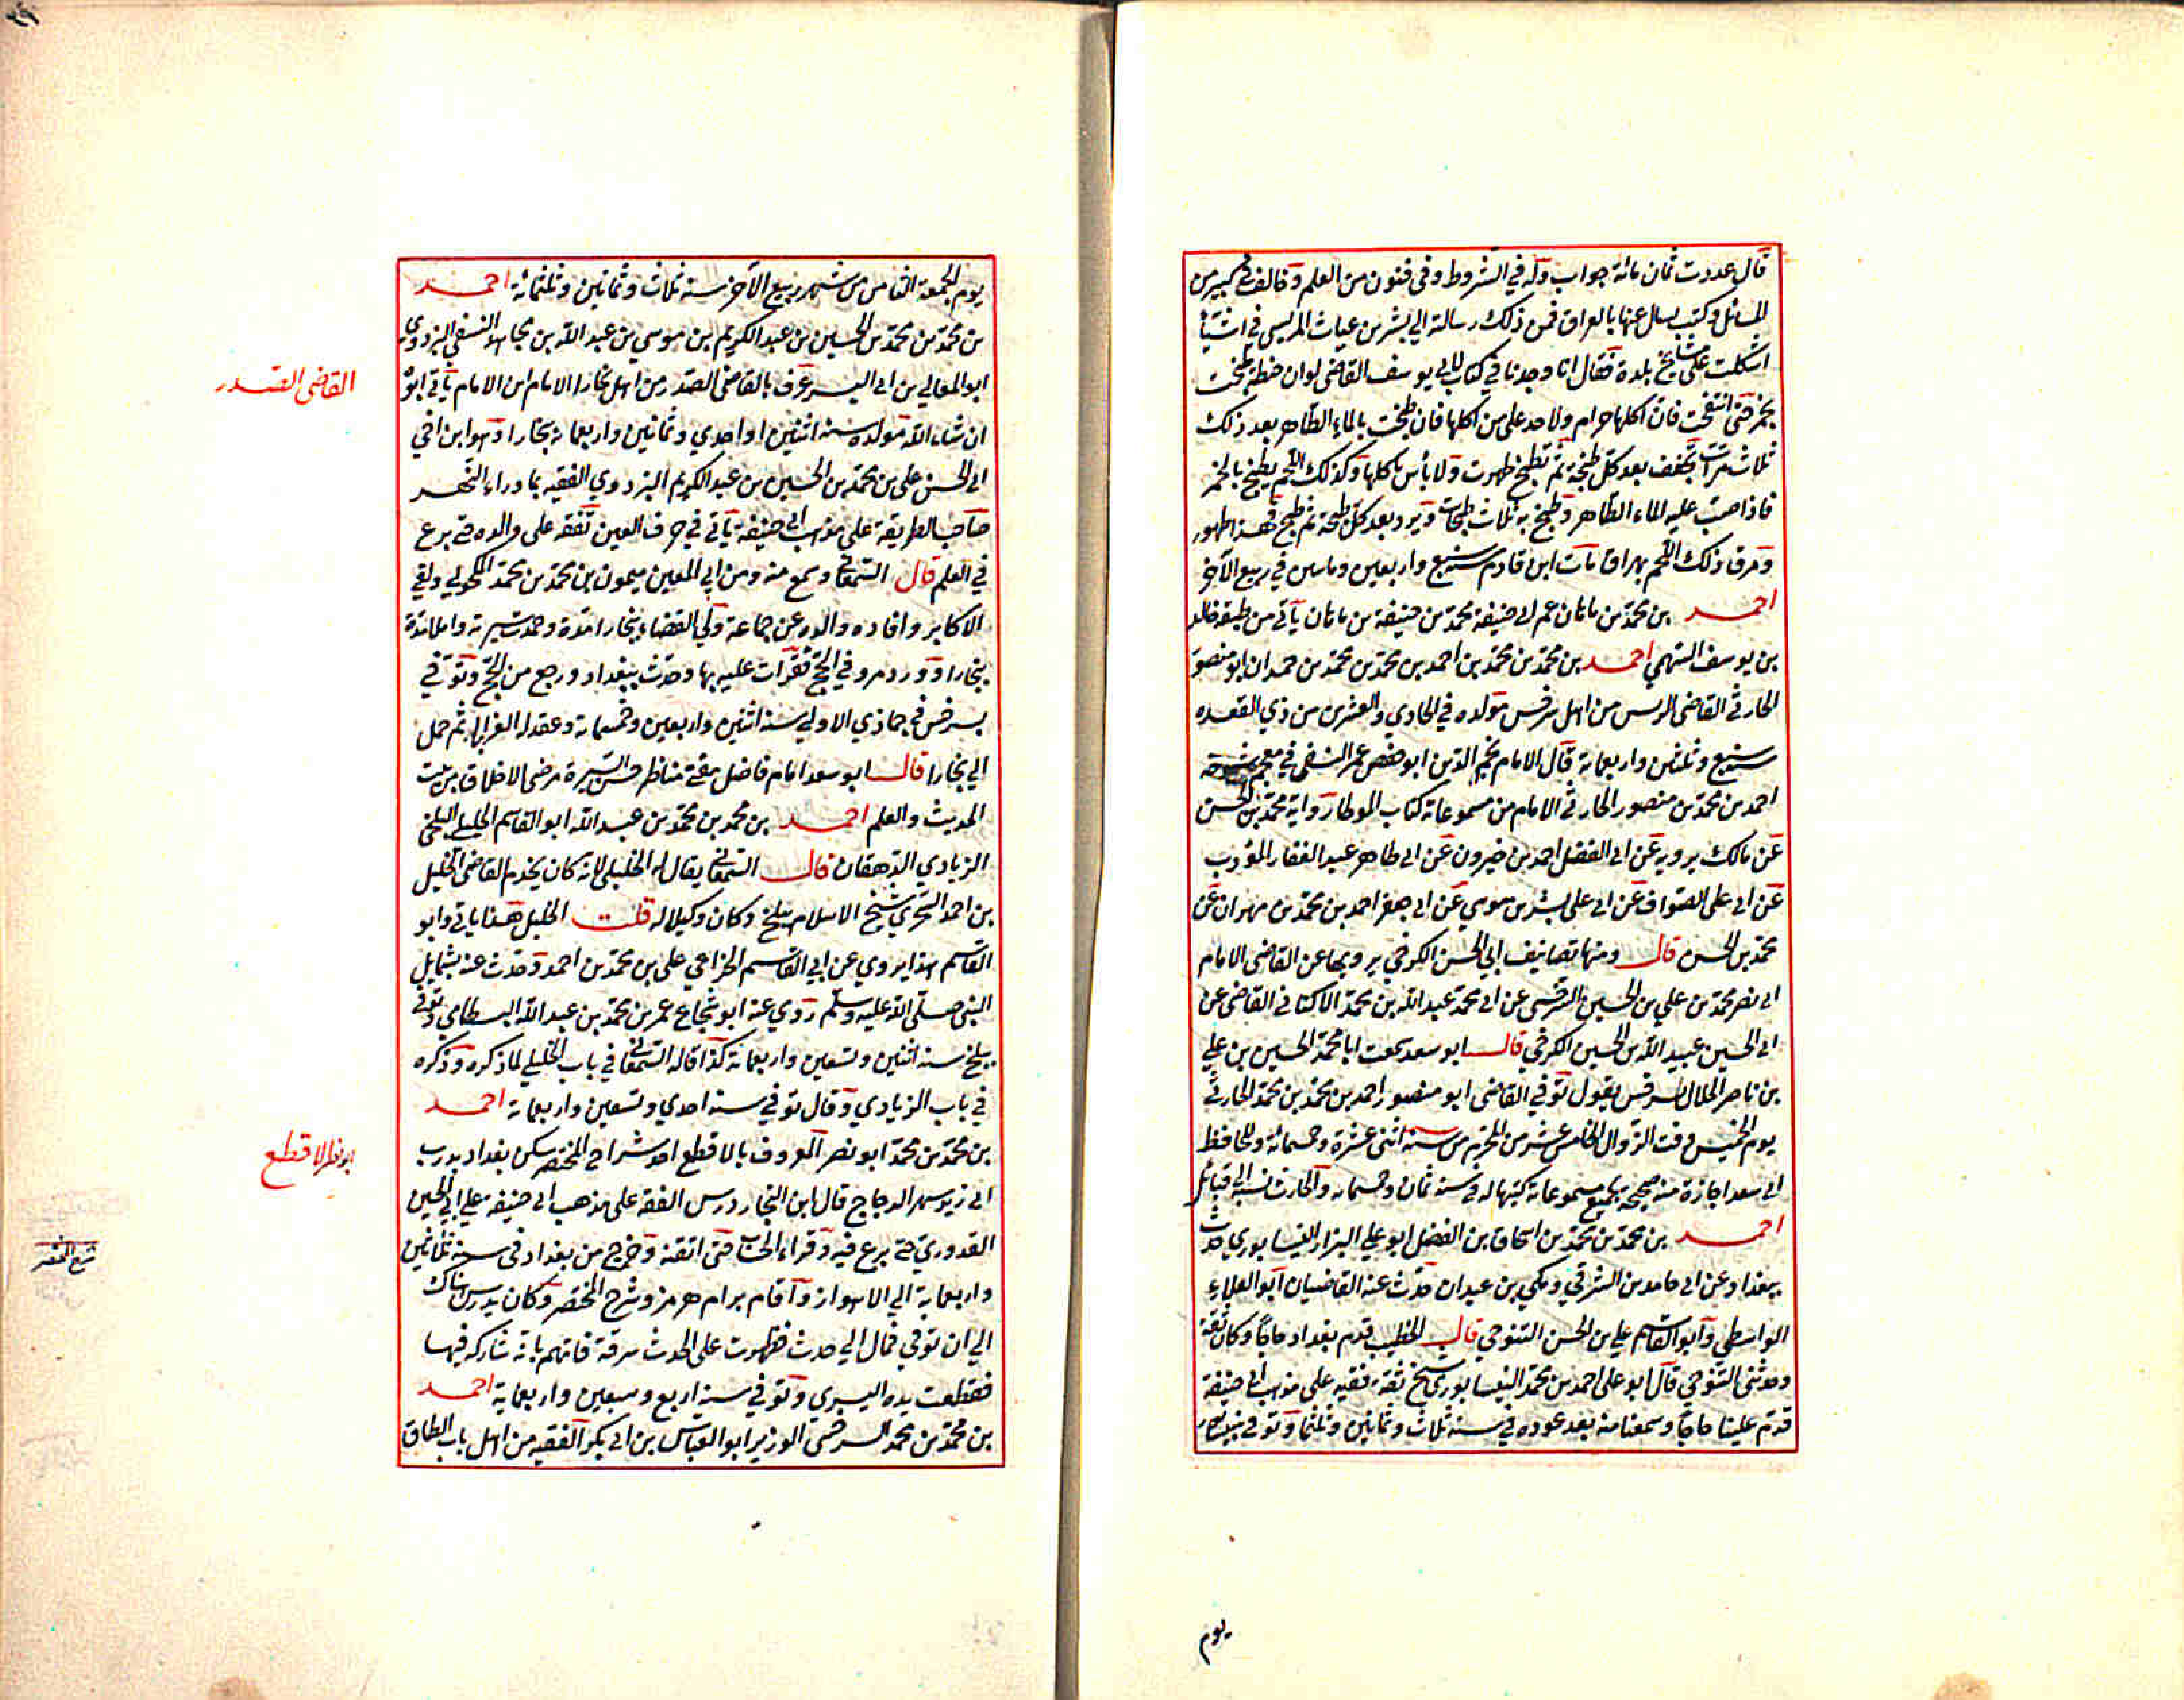 قال عددت ثمان مائة جواب وله في الشروط وفى فنون من العلم وخالف في كبير من
المسائل وكتب يسال عنها بالعراق فمن ذلك رسالة الي بشر بن غياث المريسى في اشيآء
اشكلت على مشايخ بلدة فقال انا وجدنا في كتاب لابي يوسف القاضى لو ان حنطة طبخت
بخمر حتى انتفخت فان اكلها حرام ولا حد على من اكلها فان طبخت بالماء الطاهر بعد ذلك
ثلاث مرات تجفف بعد كل طبخة ثم تطبخ طهرت ولا بأس باكلها وكذلك اللحم يطبخ بالخمر
فاذا صب عليه الماء الطاهر وطبخ به ثلاث طبخات ويبرد بعد كل طبخة ثم طبخ فهذا طهور
ومرقا ذلك اللحم يهراق مات ابن قادم سنة سبع واربعين وماىىن في ربيع الآخر
احمد بن محمد بن ماىان عم ابى حنيفة محمد بن حنيفة بن ماىان يأتى من طبقة خالد
بن يوسف السهمي احمد بن محمد بن محمد بن احمد بن محمد بن محمد بن حمدان ابو منصور
الحارثى القاضى الرىىس من اهل سرخس مولده في الحادي والعشرين من ذي القعده
سنة سبع وثلثين واربعماىة قال الامام نجم الدين ابو حفص عمر النسفى في معجم شيوخه
احمد بن محمد بن منصور الحارثى الامام من مسموعاته كتاب الموطا رواية محمد بن الحسن
عن مالك يرويه عن ابى الفضل احمد بن خيرون عن ابى طاهر عبد الغفار المؤدب
عن ابى على الصواف عن ابى على بشر بن موسي عن ابى جعفر احمد بن محمد بن مهران عن
محمد بن الحسن قال ومنها تصانيف ابي الحسن الكرخي يرويها عن القاضى الامام
ابى نصر محمد بن علي بن الحسين السرخسى عن ابى محمد عبد الله بن محمد الاكفانى القاضى عن
ابى الحسين عبيد الله بن الحسين الكرخي قال ابو سعد سمعت ابا محمد الحسين بن علي
بن ناصر الحلال بسرخس يقول توفي القاضى ابو منصور احمد بن محمد بن محمد الحارثى
يوم الخميس وقت الزوال الخامس عشر من المحرم من سنة اثنى عشرة وخمسمائة وللحافظ
ابى سعد اجازة منه صحيحة بجميع مسموعاته كتبها له في سنة ثمان وخمسماىة والحارث نسبة الى قبائل
احمد بن محمد بن محمد بن اسحاق بن الفضل ابو علي البزار النيسابوري حدث
ببغداد عن ابى حامد بن الشرقي ومكي بن عبدان حدث عنه القاضيان ابو العلاء
الواسطي وابو القاسم علي بن الحسن التنوخي قال الخطيب قدم بغداد حاجا وكان ثقة
وحدثنى التنوخي قال ابو على احمد بن محمد النيسابوري شيخ ثقة فقيه على مذهب ابى حنيفة
قدم علينا حاجا وسمعنا منه بعد عوده في سنة ثلاث وثمانين وثلثما وتوفي بنيسابور
يوم
يوم الجمعة الخامس من شهر ربيع الآخر سنة ثلاث وثمانين وثلثمائة احمد
بن محمد بن محمد بن الحسين بن عبد الكريم بن موسي بن عبد الله بن مجاهد النسفى البزدوي
ابو المعالي بن ابى اليسر عرف بالقاضى الصدر من اهل بخارا الامام ابن الامام يأتى ابوه
ان شاء الله مولده سنة اثنتين او احدي وثمانين واربعماىة ببخارا وهو ابن اخي
ابى الحسن على بن محمد بن الحسين بن عبد الكريم البزدوي الفقيه بما وراء النهر
صاحب الطريقة على مذهب ابى حنيفة يأتى في حرف العين تفقه على والده حتى برع
في العلم قال السمعانى وسمع منه ومن ابي المعين ميمون بن محمد بن محمد المكحولي ولقي
الاكابر وافاده والده عن جماعة ولي القضاء ببخارا مدة وحمدت سيرته واملا مدة
ببخارا وورد مرو في الحج فقرأت عليه بها وحدث ببغداد ورجع من الحج وتوفي
بسرخس في جماذي الاولي سنة اثنين واربعين وخمسماىة وعقد له العزا بها ثم حمل
الي بخارا قال ابو سعد امام فاضل مفتى مناظر حسن السيرة مرضى الاخلاق من بيت
الحديث والعلم احمد بن محمد بن محمد بن عبد الله ابو القاسم الخليلي البلخى
الزيادي الدهقان قال السمعاني يقال له الخليلى لانه كان يخدم القاضى الخليل
بن احمد السجزي شيخ الاسلام ببلخ وكان وكيلا له قلت الخليل هذا ياتى وابو
القاسم هذا يروي عن ابي القاسم الخزاعي على بن محمد بن احمد وحدث عنه بشمايل
النبى صلى الله عليه وسلم روي عنه ابو شجاع عمر بن محمد بن عبد الله البسطامي وتوفى
ببلخ سنة اثنين وتسعين واربعماىة كذا قاله السمعانى في باب الخليلي لما ذكره وذكره
في باب الزيادي وقال توفي سنة احدي وتسعين واربعماىة احمد
بن محمد بن محمد ابو نصر المعروف بالاقطع احد شراح المختصر سكن بغداد بدرب
ابى زيد بنهر الدجاج قال ابن النجار درس الفقه على مذهب ابى حنيفة على ابي الحسين
القدوري حتى برع فيه وقراء الحساب حتى اتقنه وخرج من بغداد فى سنة ثلاثين
واربعماية الي الاهواز واقام برام هرمز وشرح المختصر وكان يدرس هناك
الي ان توفي فمال الي حدث فظهرت على الحدث سرقة فاتهم بانه شاركه فيها
فقطعت يده اليسرى وتوفي سنة اربع وسبعين واربعماية احمد
بن محمد بن محمد السرخسى الوزير ابو العباس بن ابى بكر الفقيه من اهل باب الطاق
القاضى الصدر
ابو نصر الاقطع
شرح المختصر